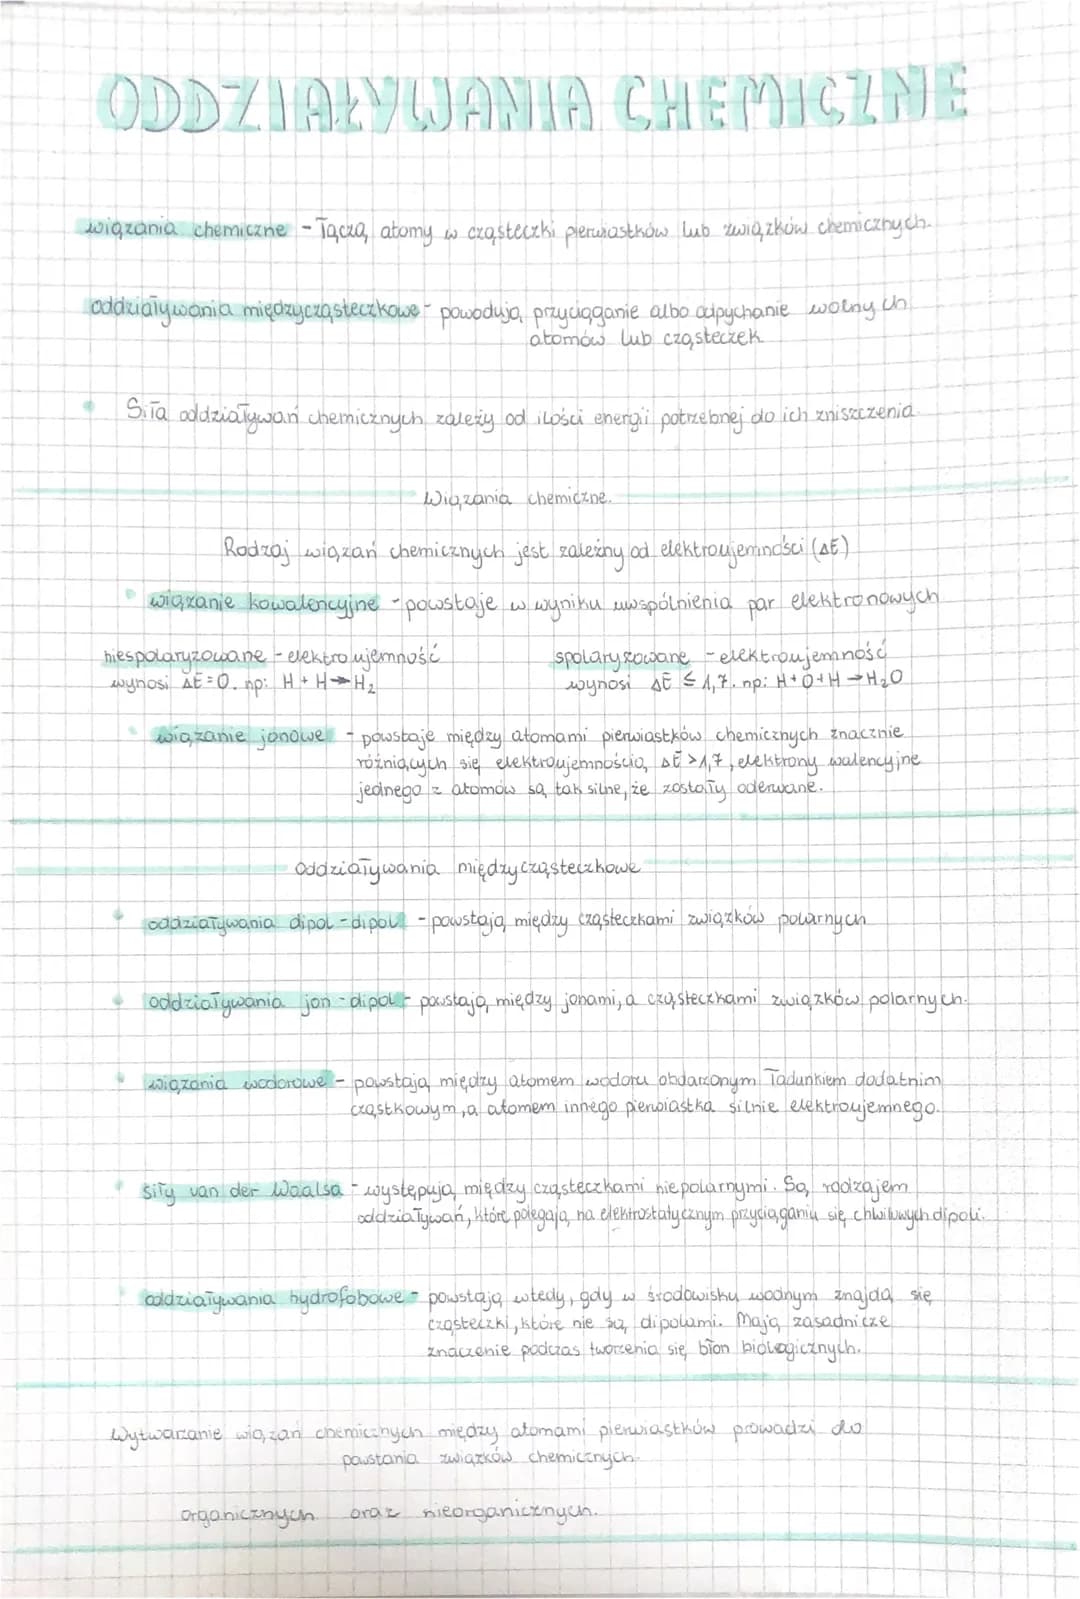 ODDZIAŁYWANIA CHEMICZNE
wiązania chemiczne - łączą atomy w cząsteczki pierwiastków lub związków chemicznych.
oddziaływania międzycząsteczkowe - powodują przyciąganie albo odpychanie wolnych
atomów lub cząsteczek
Siła oddziaływań chemicznych zależy od ilości energii potrzebnej do ich zniszczenia
Wiązania chemiczne.
Rodzaj wiązań chemicznych jest zależny od elektroujemności (ΔE)
wiązanie kowalencyjne - powstaje w wyniku uwspólnienia par elektronowych
niespolaryzowane - elektroujemność
wynosi ΔE = 0. np: H + H → H₂
spolaryzowane - elektroujemność
wynosi ΔE ≤ 1,7. np: H + O + H → H₂O
wiązanie jonowe - powstaje między atomami pierwiastków chemicznych znacznie
różniących się elektroujemnością ΔE > 1,7, elektrony walencyjne
jednego z atomów są tak silne, że zostały oderwane.
Oddziaływania międzycząsteczkowe
oddziaływania dipol - dipol - powstają między cząsteczkami związków polarnych
oddziaływania jon - dipol - powstają między jonami, a cząsteczkami związków polarnych.
wiązania wodorowe - powstają między atomem wodoru obdarzonym ładunkiem dodatnim
cząstkowym, a atomem innego pierwiastka silnie elektroujemnego.
siły van der Waalsa - występują między cząsteczkami niepolarnymi. Są rodzajem
oddziaływań, które polegają na elektrostatycznym przyciąganiu się chwilowych dipoli.
oddziaływania hydrofobowe - powstają wtedy, gdy w środowisku wodnym znajdą się
cząsteczki, które nie są dipolami. Mają zasadnicze
znaczenie podczas tworzenia się błon biologicznych.
Wytwarzanie wiązań chemicznych między atomami pierwiastków prowadzi do
powstania związków chemicznych.
organicznych oraz nieorganicznych.